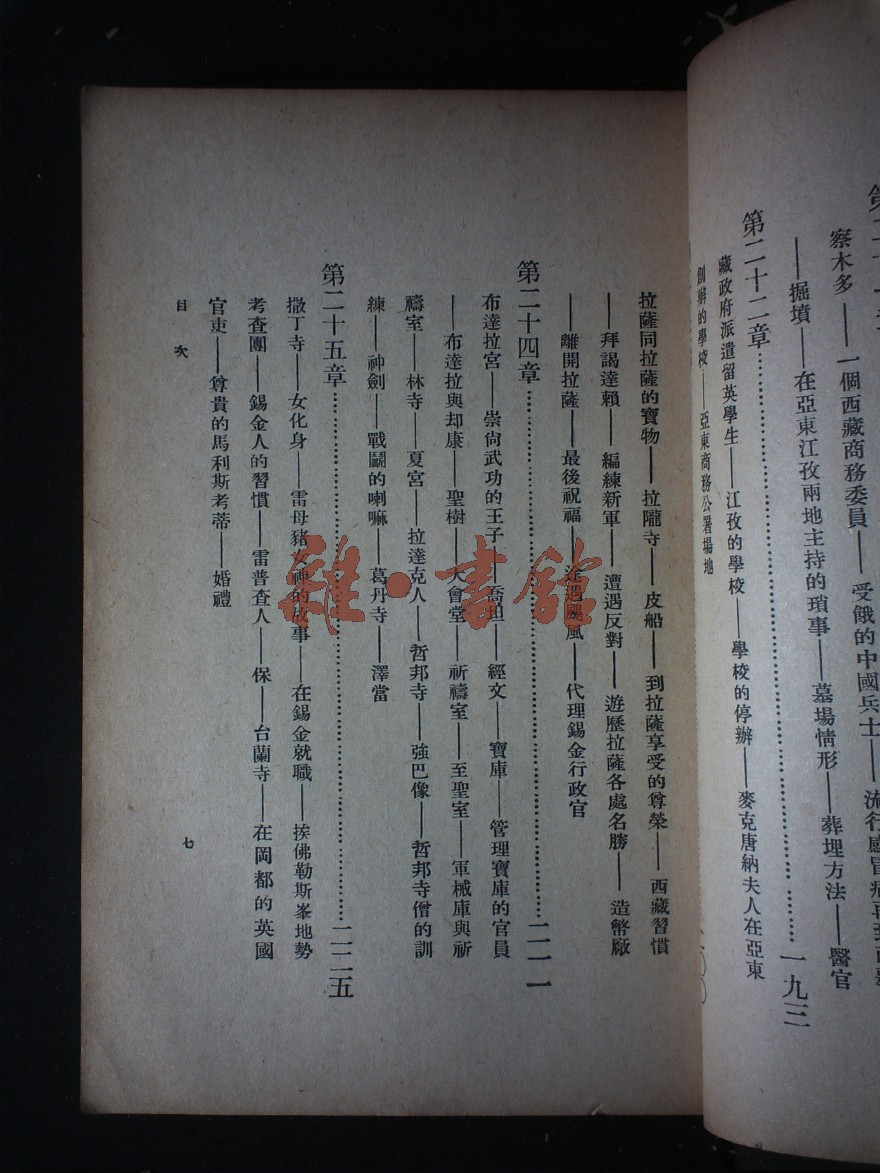 察木多——一個西藏商務委員——受餓的中國兵士——流行感冒病再到西藏
——掘墳——在亞東江孜兩地主持的瑣事——墓場情形——葬埋方法——醫官
第二十二章……一九三
藏政府派遣留英學生——江孜的學校——學校的停辦——麥克唐納夫人在亞東
創辦的學校——亞東商務公署場地
拉薩同拉薩的寶物——拉隴寺——皮船——到拉薩享受的尊榮——西藏習慣
——拜謁達賴——編練新軍——遭遇反對——遊歷拉薩各處名勝——造幣廠
——離開拉薩——最後祝福——途遇颶風——代理錫金行政官
第二十四章……二一一
布達拉宮——崇尙武功的王子——喬坦——經文——寶庫——管理寶庫的官員
——布達拉與却康——聖樹——大會堂——祈禱室——至聖室——軍械庫與祈
禱室——林寺——夏宮——拉達克人——哲邦寺——強巴像——哲邦寺僧的訓
練——神劍——戰鬭的喇嘛——葛丹寺——澤當
第二十五章……二二五
撒丁寺——女化身——雷母豬女神的故事——在錫金就職——挨佛勒斯峯地勢
考查團——錫金人的習慣——雷普查人——保——台蘭寺——在岡都的英國
官吏——尊貴的馬利斯考蒂——婚禮
目次
七
雜·書館